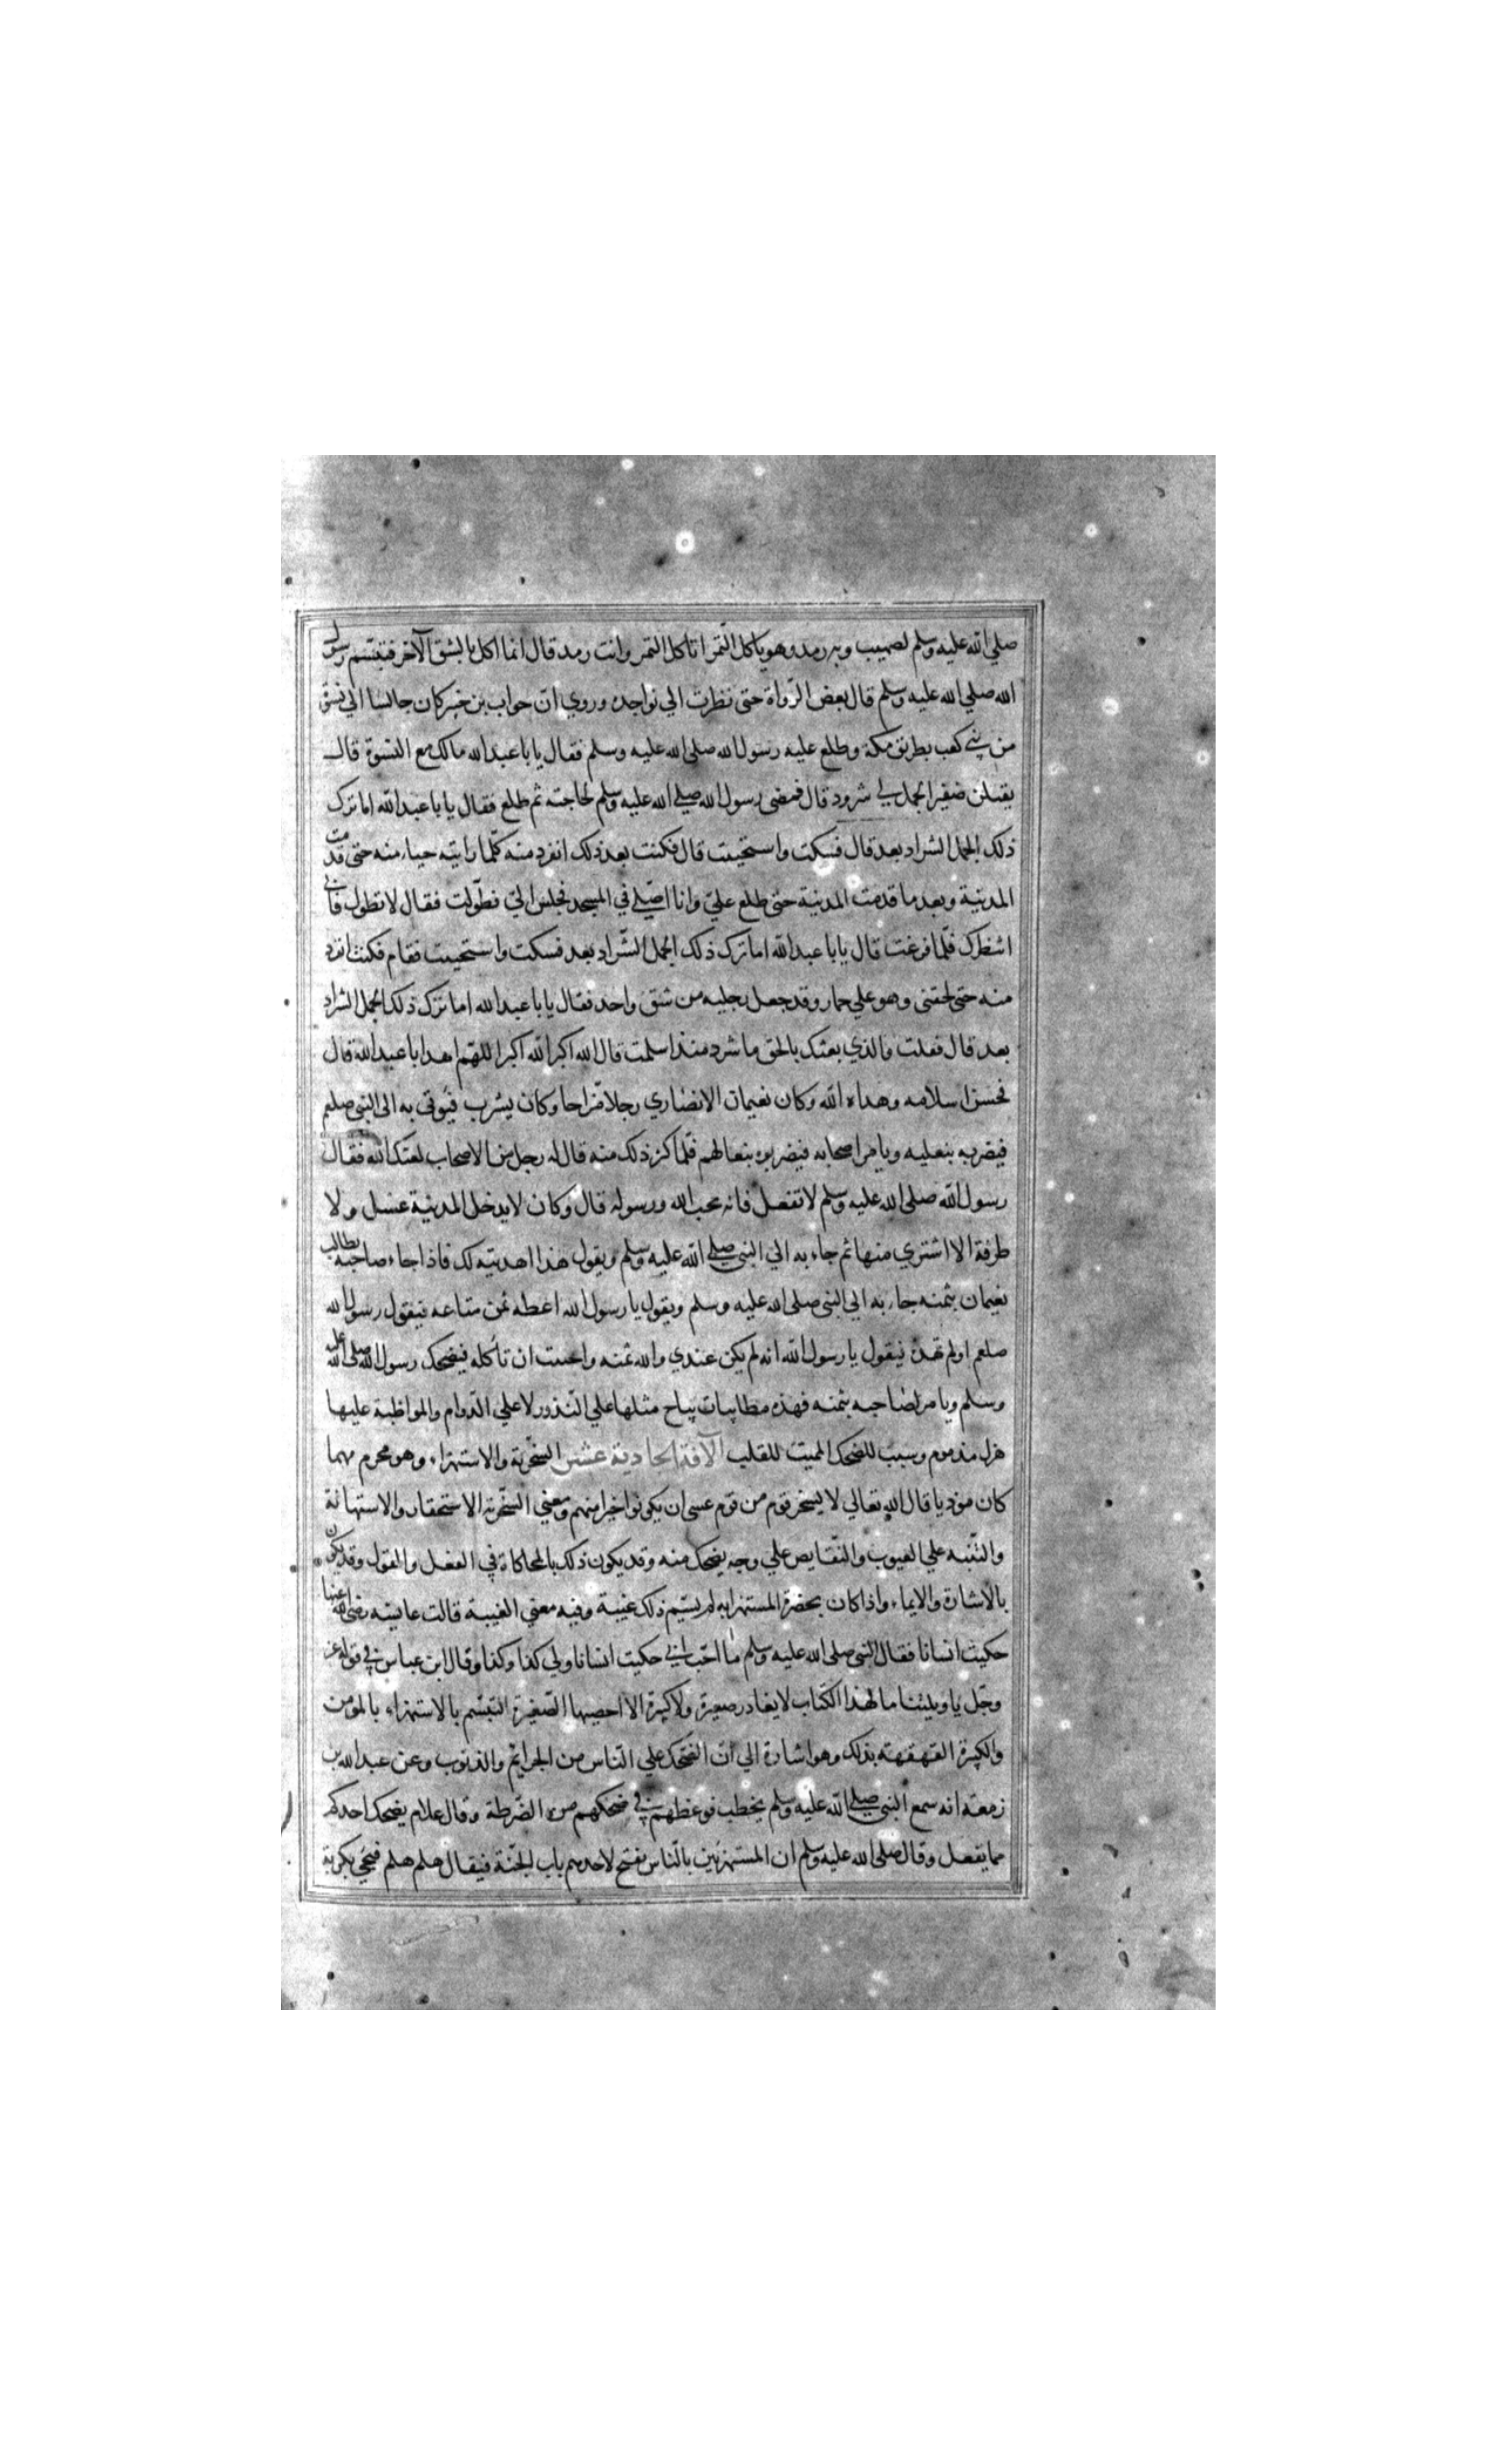 صلي الله عليه وسلم لصهيب وبه رمد وهو ياكل التمر اتاكل التمر وانت رمد قال انما اكل بالشق الآخر فتبسم رسول
الله صلي الله عليه وسلم قال بعض الرواة حتى نظرت الي نواجده وروي ان حواب بن خبير كان جالسا الي نسوة
من بني كعب بطريق مكة وطلع عليه رسول الله صلى الله عليه وسلم فقال يا با عبد الله مالك مع النسوة قال
يفتلن ضفيرا لجمل لي شرود قال فمضى رسول الله صلي الله عليه وسلم لحاجته ثم طلع فقال يا با عبد الله اما ترك
ذلك الجمل الشراد بعد قال فسكت واستحييت قال فكنت بعد ذلك انفرد منه كلما رايته حياء منه حتى قدمت
المدينة وبعد ما قدمت المدينة حتى طلع علي وانا اصلي في المسجد فجلس الي فطولت فقال لا تطول فاني
انتظرك فلما فرغت قال يا با عبد الله اما ترك ذلك الجمل الشراد بعد فسكت واستحييت فقام فكنت انفرد
منه حتى لحقني وهو علي حمار وقد جعل رجليه من شق واحد فقال يا با عبد الله اما ترك ذلك الجمل الشراد
بعد قال فقلت والذي بعثك بالحق ما شرد منذ اسلمت قال الله اكبر الله اكبر اللهم اهد ابا عبد الله قال
فحسن اسلامه وهداه الله وكان نعيمان الانصاري رجلا مزاحا وكان يشرب فيوتي به الى النبي صلعم
فيضربه بنعليه ويامر اصحابه فيضربوه بنعالهم فلما كثر ذلك منه قال له رجل من الاصحاب لعنك الله فقال
رسول الله صلى الله عليه وسلم لا تفعل فانه يحب الله ورسوله قال وكان لا يدخل المدينة عسل ولا
طرفة الا اشتري منها ثم جاء به الي النبي صلي الله عليه وسلم ويقول هذا اهديته لك فاذا جاء صاحبه يطالب
نعيمان بثمنه جاء به الي النبي صلى الله عليه وسلم ويقول يا رسول الله اعطه ثمن متاعه فيقول رسول الله
صلعم اولم تهده فيقول يا رسول الله انه لم يكن عندي والله ثمنه واحببت ان تأكله فيضحك رسول الله صلى الله عليه
وسلم ويامر لصاحبه بثمنه فهذه مطايبات يباح مثلها علي النذور لا علي الدوام والمواظبة عليها
هزل مذموم وسبب للضحك المميت للقلب الآفة الحادية عشر السخرية والاستهزاء وهو محرم مهما
كان موذيا قال الله تعالي لا يسخر قوم من قوم عسى ان يكونوا خيرا منهم ومعني السخرية الاستحقار والاستهانة
والتنبيه علي العيوب والنقايص علي وجه يضحك منه وقد يكون ذلك بالمحاكاة في الفعل والقول وقد يكون
بالاشارة والايماء واذا كان بحضرة المستهزا به لم يسم ذلك غيبة وفيه معني الغيبة قالت عايشه رضى الله عنها
حكيت انسانا فقال النبي صلى الله عليه وسلم ما احب اني حكيت انسانا ولي كذا وكذا وقال ابن عباس في قوله عز
وجل يا ويلتنا ما لهذا الكتاب لا يغادر صغيرة ولا كبيرة الا احصيها الصغيرة التبسم بالاستهزاء بالمومن
والكبيرة القهقهة بذلك وهو اشارة الي ان الضحك علي الناس من الجرايم والذنوب وعن عبد الله بن
زمعة انه سمع النبي صلي الله عليه وسلم يخطب فوعظهم في ضحكهم من الضرطة وقال علام يضحك احدكم
مما يفعل وقال صلى الله عليه وسلم ان المستهزئين بالناس يفتح لاحدهم باب الجنة فيقال هلم هلم فيجي بكربه